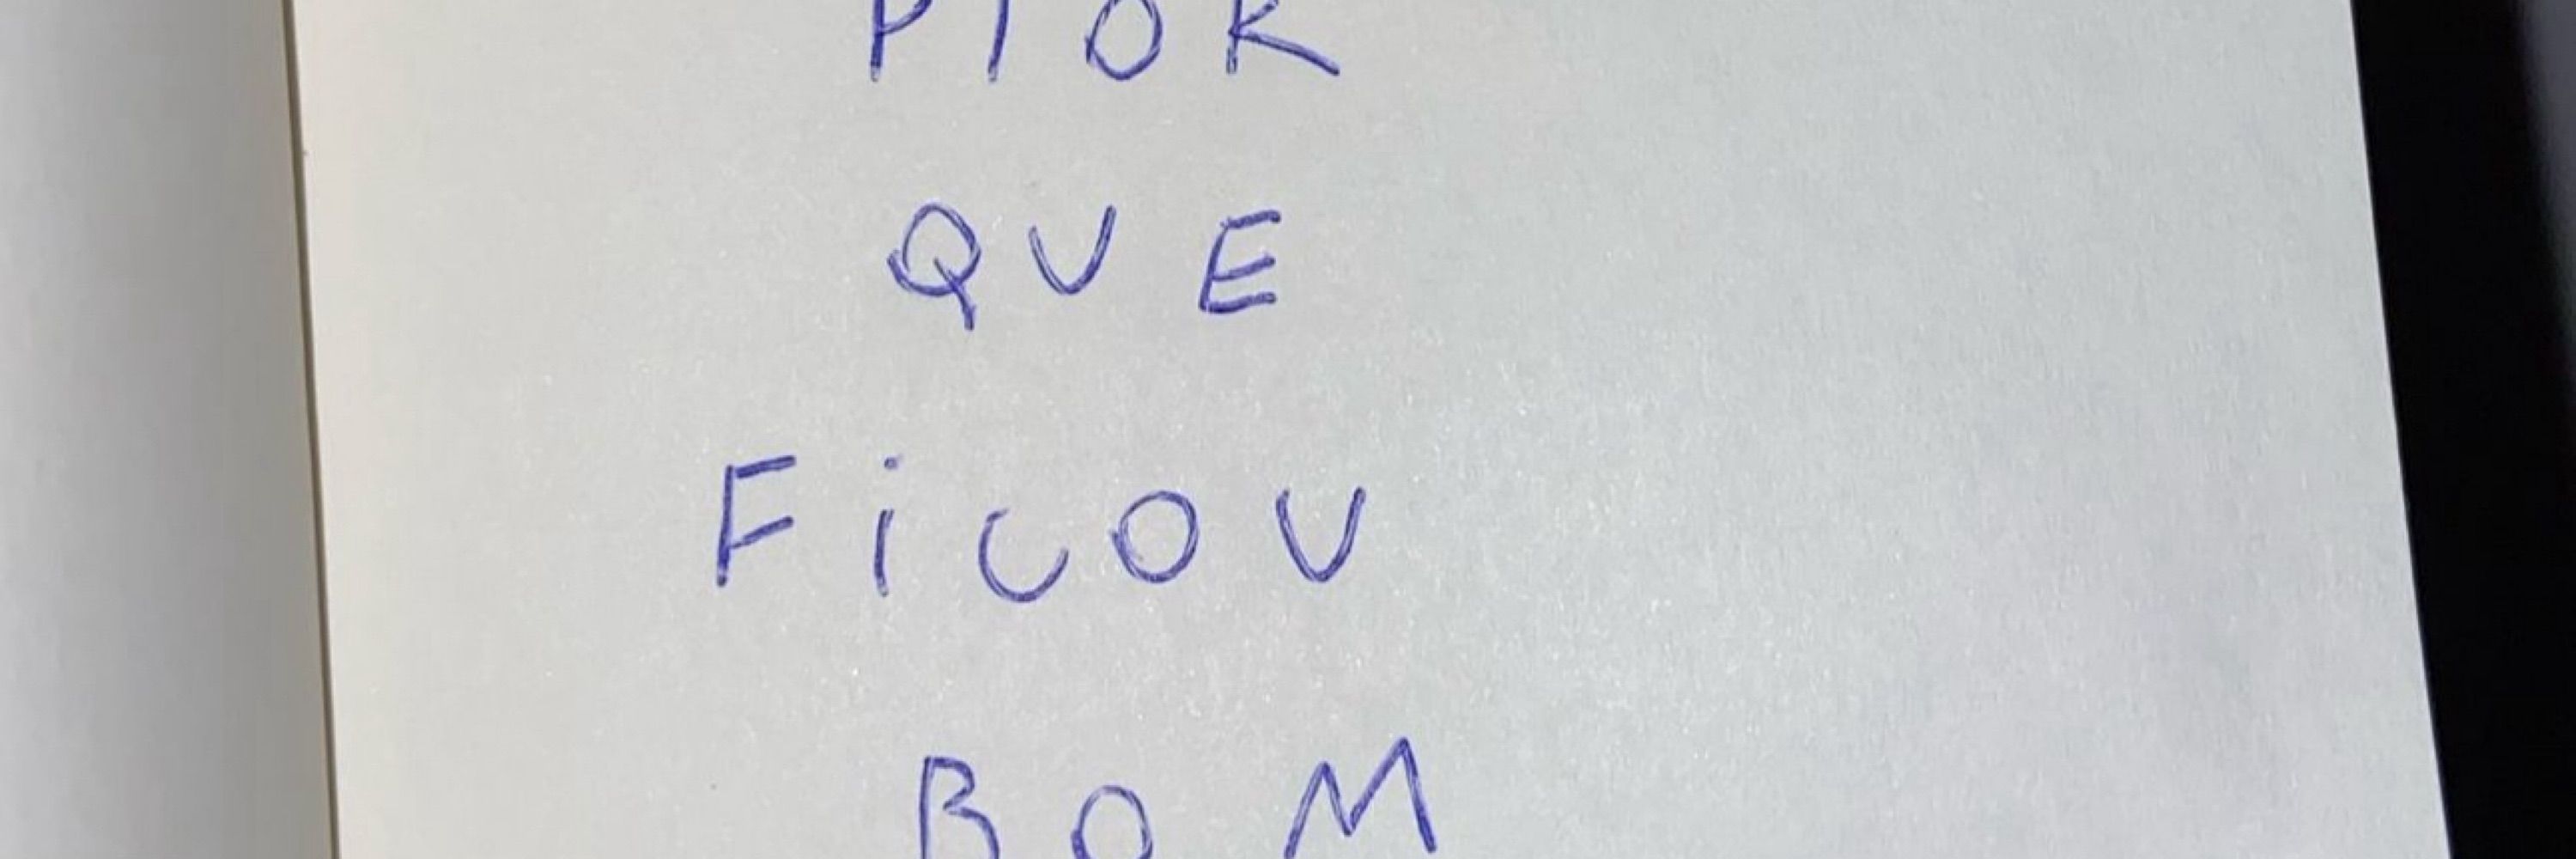 PIOR
QUE
FiCOU
BOM